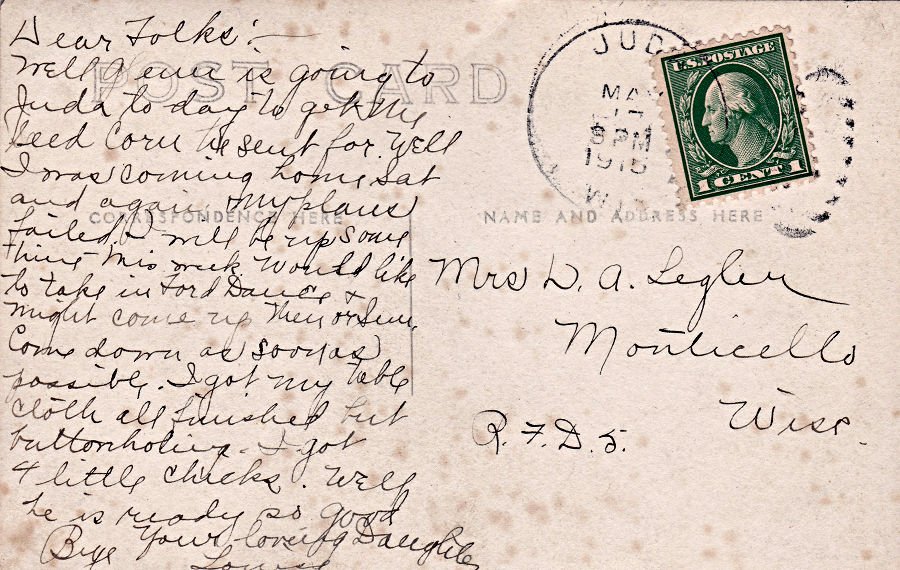 Dear Folks:-
Well is going to
Juda to day to get the
seed corn he sent for. Well
I was coming home Sat
and again my plans
failed. I will be up some
time this week. Would like
to take in Ford Dance &
might come up then or Sun.
Come down as soon as
possible. I got my table
cloth all finished but
buttonholing. I got
4 little chicks. Well
he is ready so good
Bye Your loving Daughter
Louise
POST CARD
CORRESPONDENCE HERE
NAME AND ADDRESS HERE
JUD
MAY
8 PM
WIS
U.S. POSTAGE
1 CENT 1
Mrs D. A. Legler
Monticello
Wisc.
R. F. D. 5.